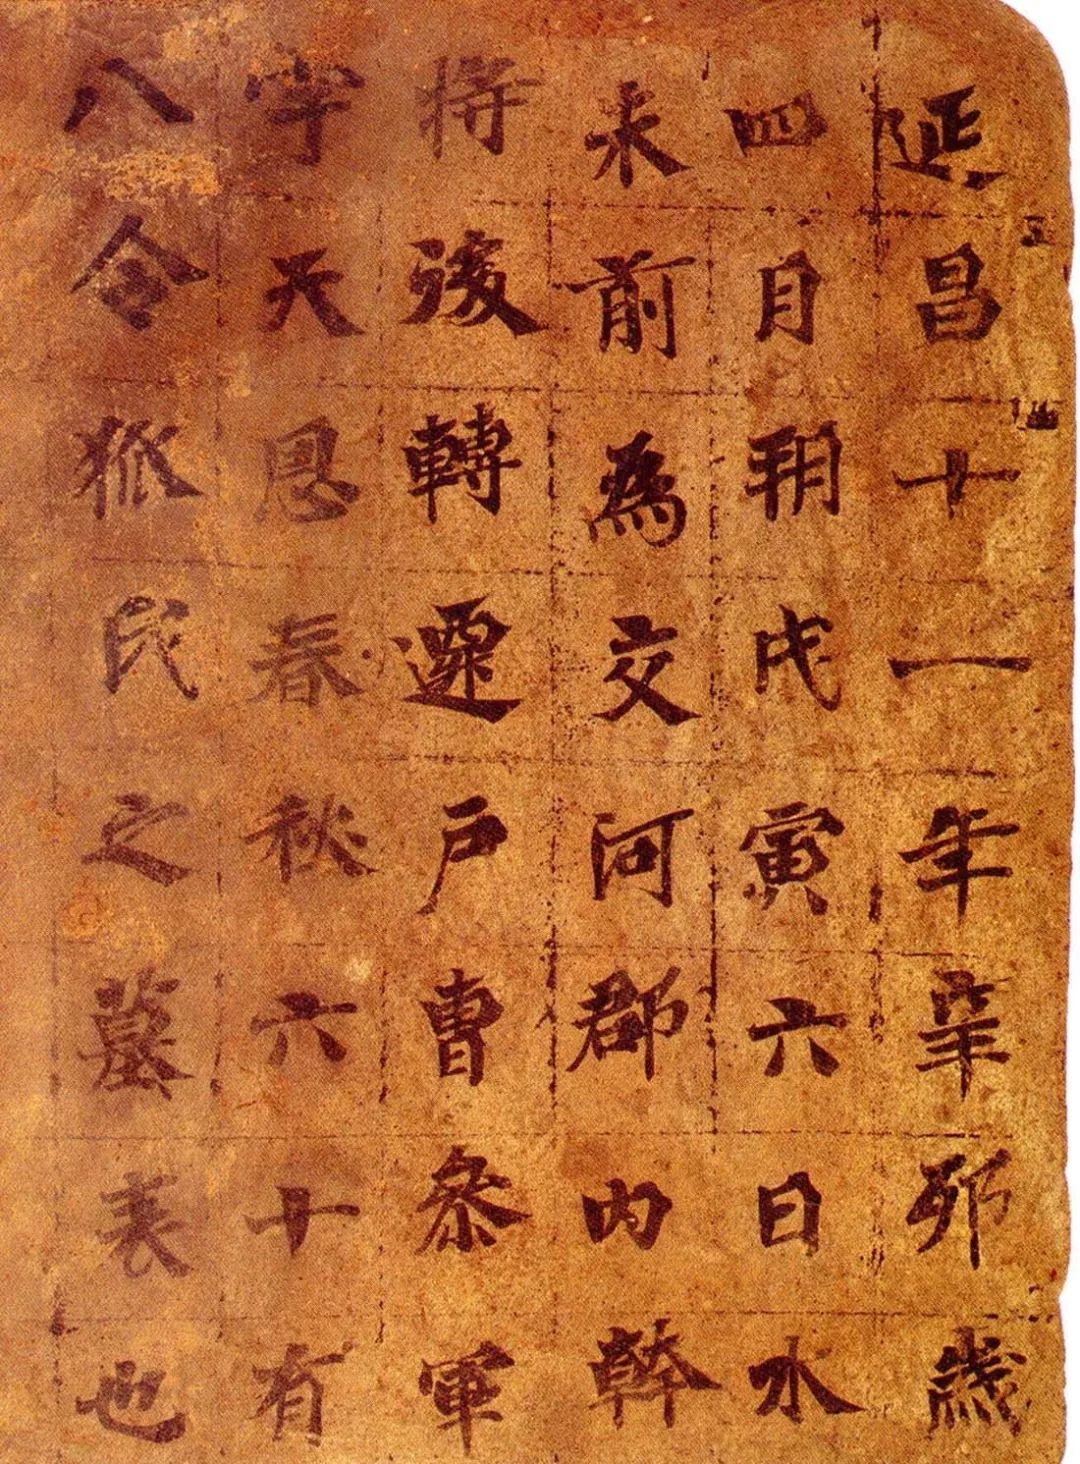 延昌十一年辛卯歲
四月朔戊寅六日水
未前為交河郡内幹
將後轉遷戶曹參軍
字天恩春秋六十有
八令狐氏之墓表也